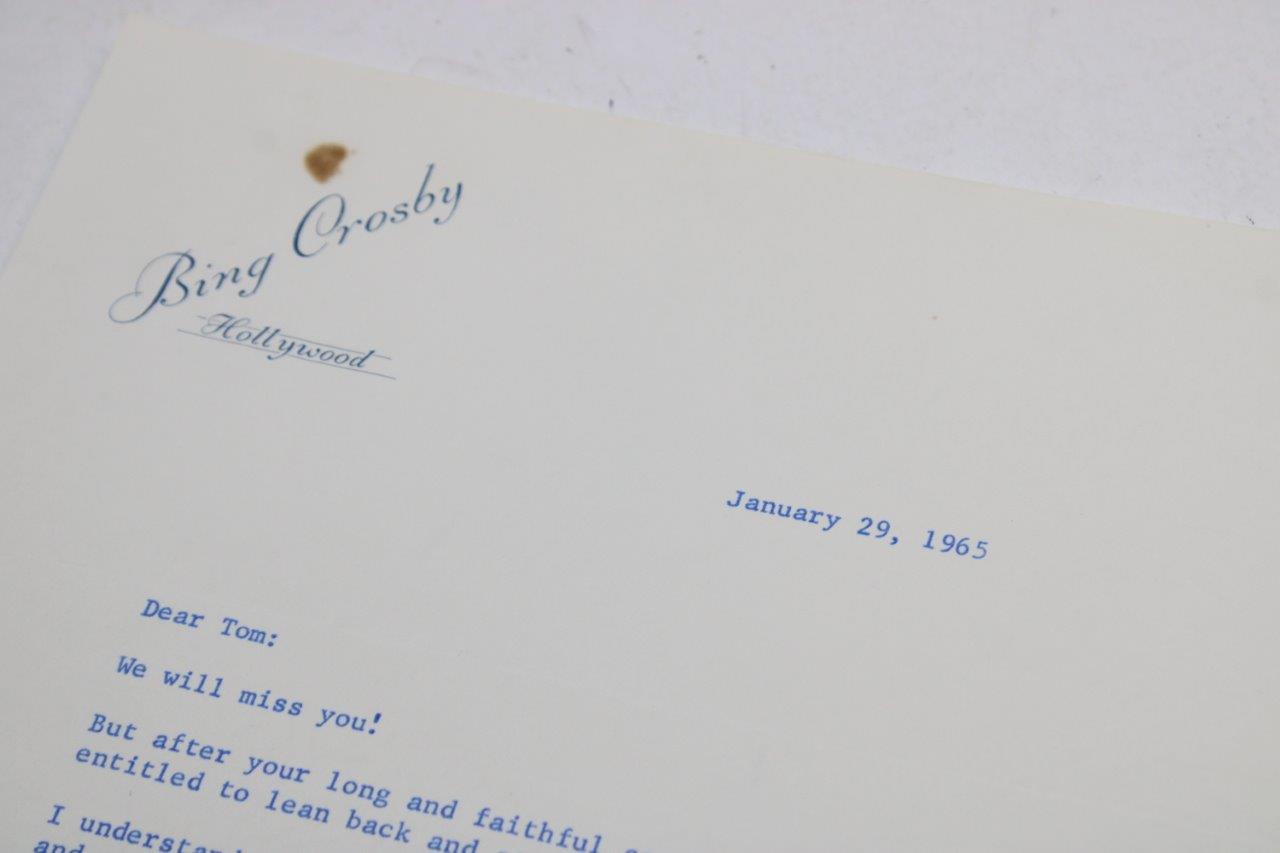 Bing Crosby
Hollywood
January 29, 1965
Dear Tom:
We will miss you!
But after your long and faithful
entitled to lean back and
I
and